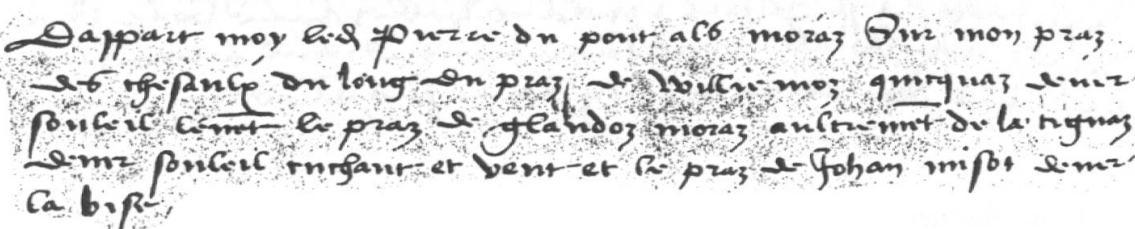 Dappart moy led Pierre du pont als moraz Sur mon praz
des thesaulx du long du praz de Williemoz quicquaz dever
souleil levet le praz de glandoz moraz aultremet de la tignaz
dever souleil cuchant et vent et le praz de Johan misot dever
la bise